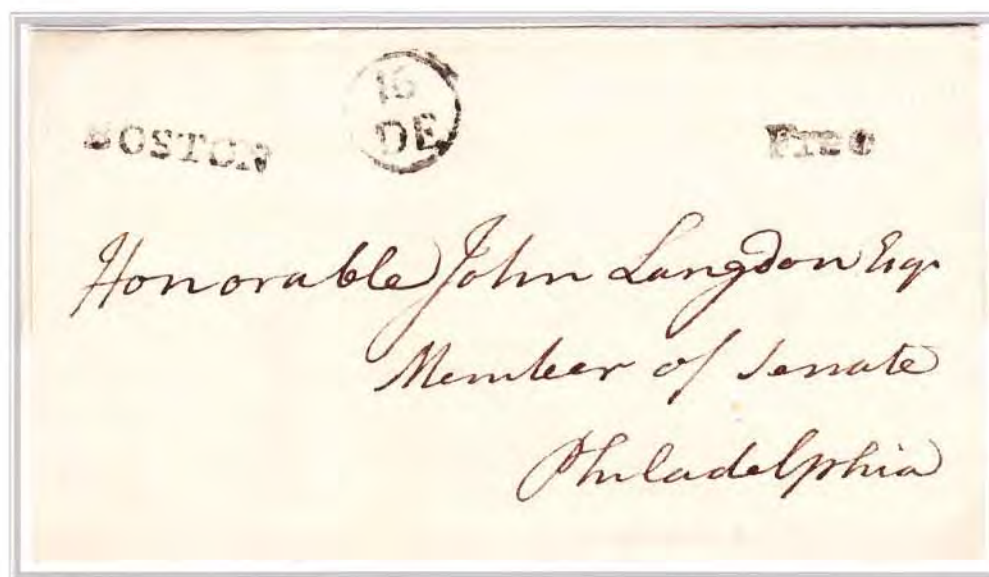 BOSTON
16
DE
Free
Honorable John Langdon Esqr
Member of Senate
Philadelphia